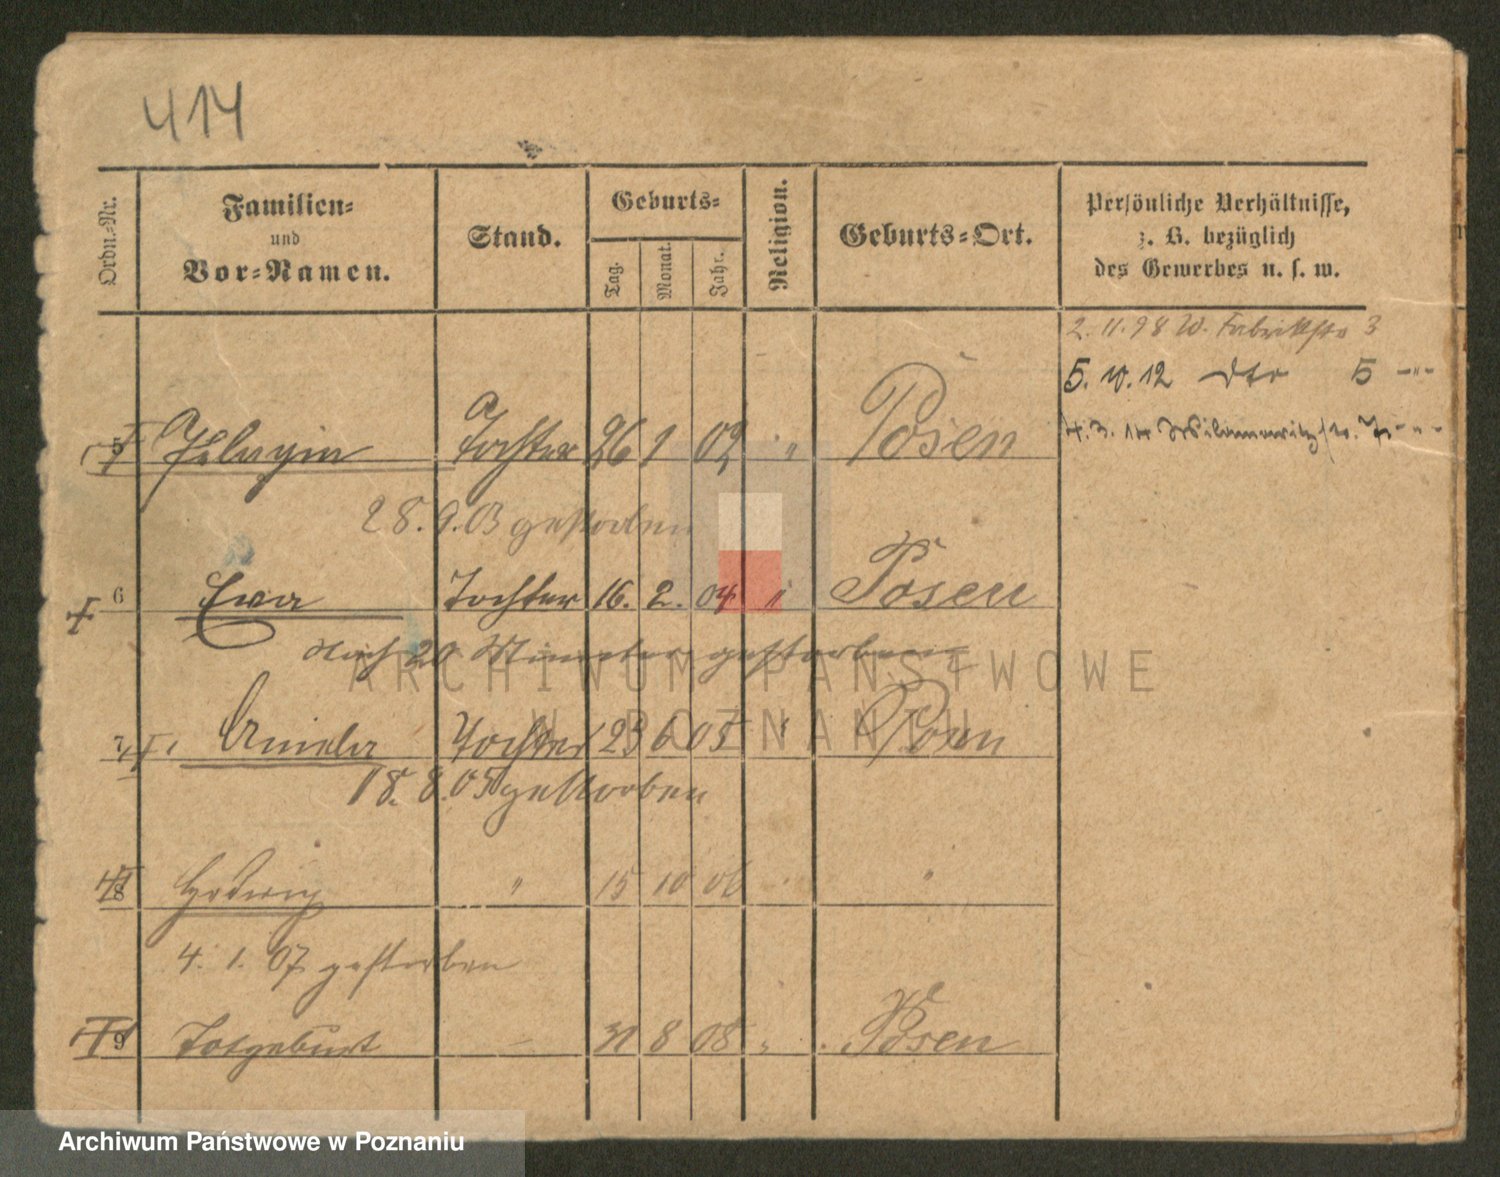 414
Ordn.-Nr.
Familien-
und
Vor-Namen.
Stand.
Geburts-
Tag.
Monat.
Jahr.
Religion.
Geburts-Ort.
Persönliche Verhältnisse,
z. B. bezüglich
des Gewerbes u. s. w.
2. 11. 98 W. Fabrikstr 3
5. 10. 12 dto 5 -"-
4. 3. 14
5 Pelagia Tochter 26 1 02 " Posen
28. 9. 03 gestorben
6 Ewa Tochter 16. 2. 04 " Posen
Nach 20 Minuten gestorben
ARCHIWUM PAŃSTWOWE
W POZNANIU
7 Aniela Tochter 23 6 05 " Posen
18. 8. 05 gestorben
8 Hedwig " 15 10 06 "
4. 1. 07 gestorben
9 Totgeburt — 31 8 08 " Posen
Archiwum Państwowe w Poznaniu